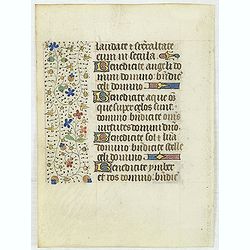 laudate et superexaltate
eum in secula
Benedicite angeli do
mini domino: bñdicite
celi domino
Benedicite aque õs
que super celos sunt
domino bñdicite om̃s
uirtutes domini dño
Benedicite sol et lu
na domino bñdicite stelle
celi domino
Benedicite ymber
et ros domino bñdic